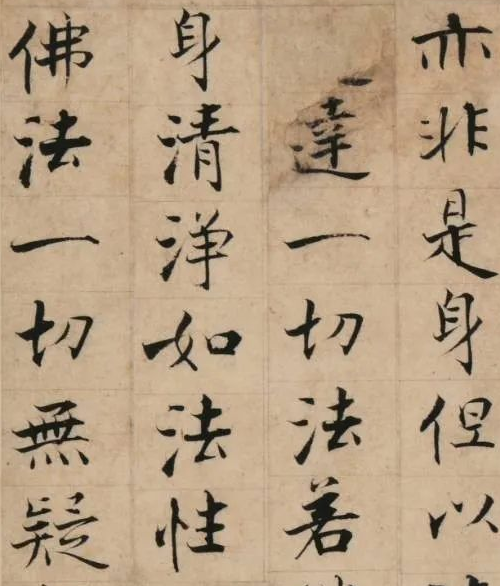 亦非是身但以
達一切法若
身清淨如法性
佛法一切無疑